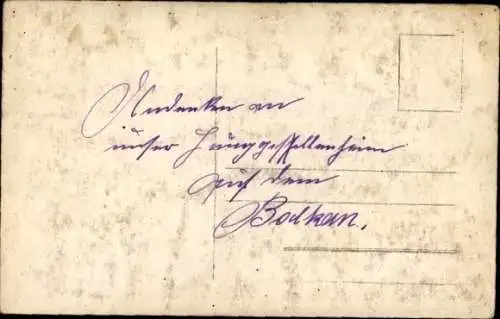 Andenken an
unser Junggesellenheim
auf dem
Balkan.